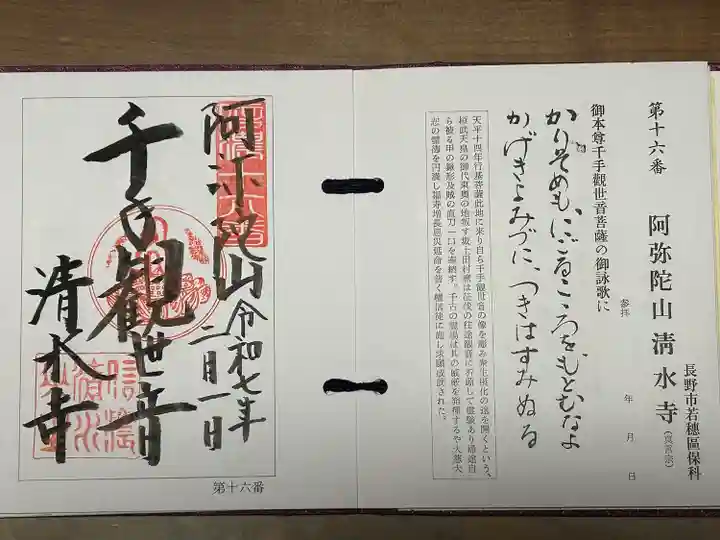 第十六番 阿弥陀山清水寺（真言宗）
長野市若穗區保科
参拝 年 月 日
御本尊千手觀世音菩薩の御詠歌に
かりそめも、にごるこころをもとむなよ
かげきよみづに、つきはすみぬる
天平十四年行基菩薩此地に来り自ら千手觀世音の像を彫み衆生坂化の道を開くという、
桓武天皇の御代東奥の地叛す坂上田村麿は征伐の往途觀音に祈願して靈験あり帰途自
ら被る甲の鍬形及賊の直刀一口を奉納す。千古の靈場は其の威厳を発揮するや大慈大
悲の靈湾を円満し福寿増長息災延命を説く檀信徒に施し求願成就された。
阿弥陀山 令和七年
二月一日
千手觀世音
清水寺
第十六番